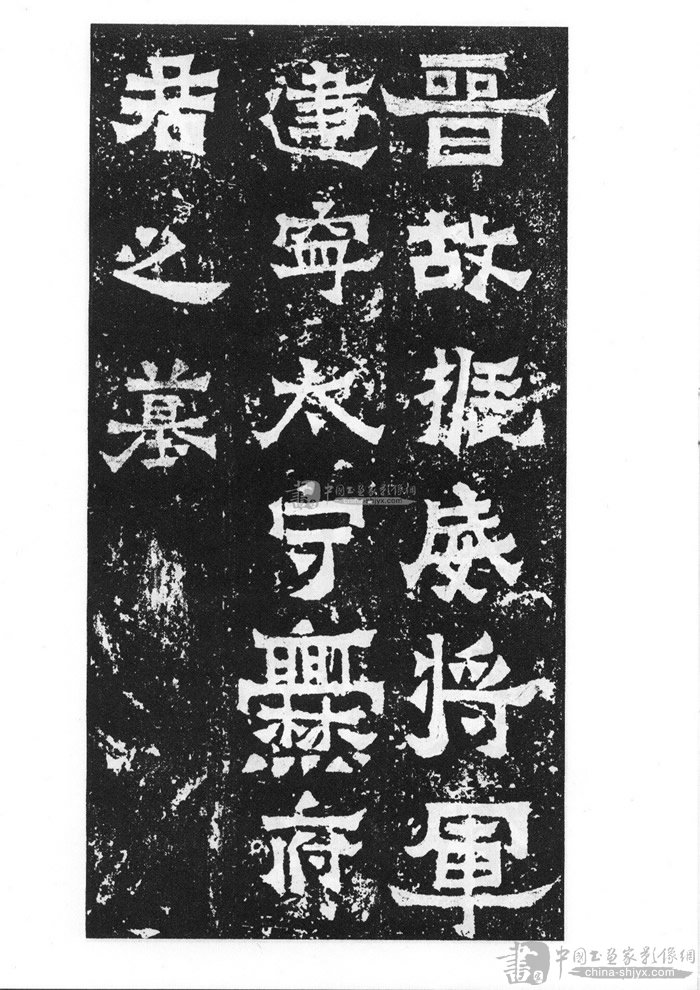 晉故振威將軍
建寧太守爨府
君之墓
中国书画家影像網
www.china-shjyx.com
書
中国书画家影像網
china-shjyx.com